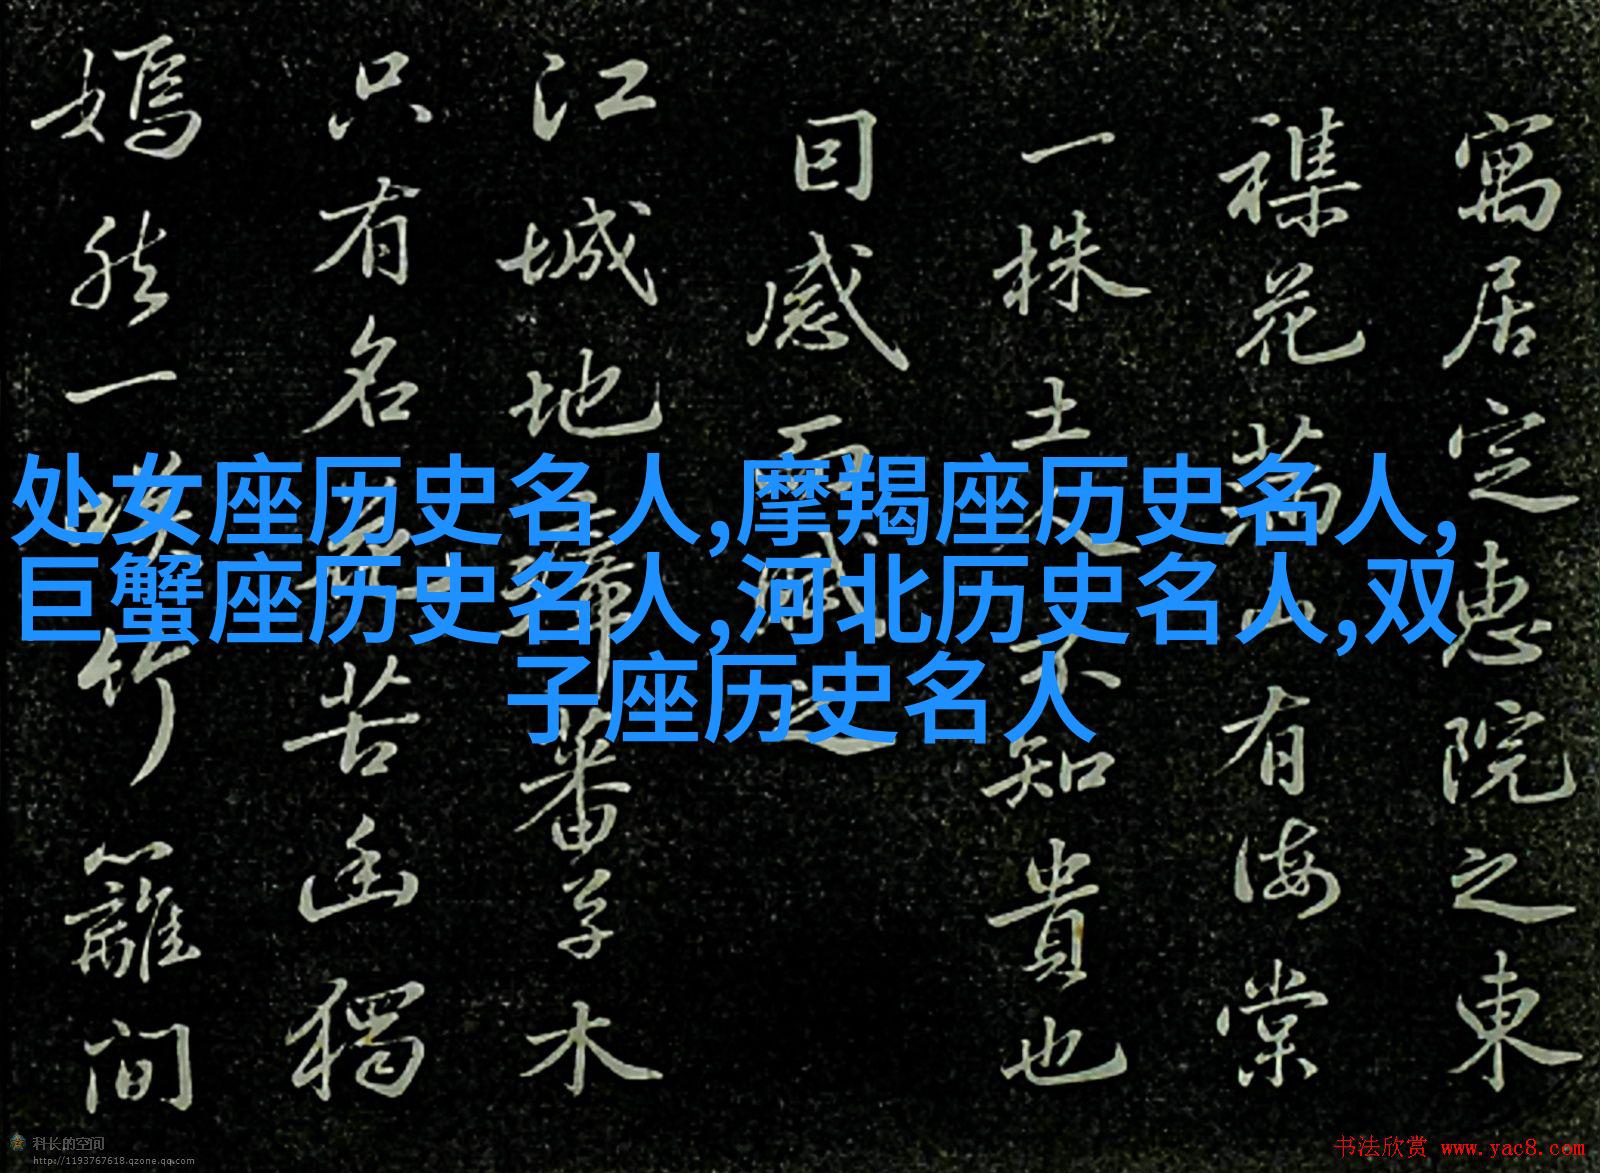 处女座历史名人,摩羯座历史名人,
巨蟹座历史名人,河北历史名人,双
子座历史名人
寓居定惠院之東
襍花滿山有海棠
一株土人不知貴也
囙感而之
江城地瘴蕃草木
只有名花苦幽獨
嫣然一咲竹籬間
科长的空间
http://1193767618.qzone.qq.com
书法欣赏 www.yac8.com